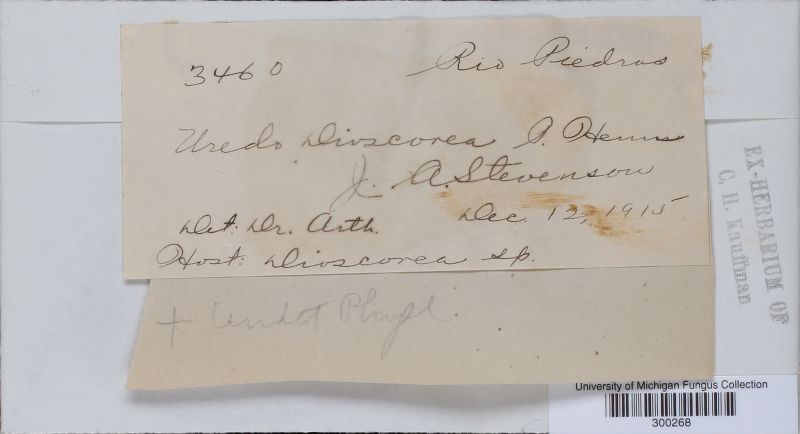 3460 Rio Piedras
Uredo Dioscorea P. Henns
J. A. Stevenson
Det: Dr. Arth. Dec. 12, 1915
Host: Dioscorea sp.
+ Undet Phyl.
EX-HERBARIUM OF
C. H. Kauffman
University of Michigan Fungus Collection
300268